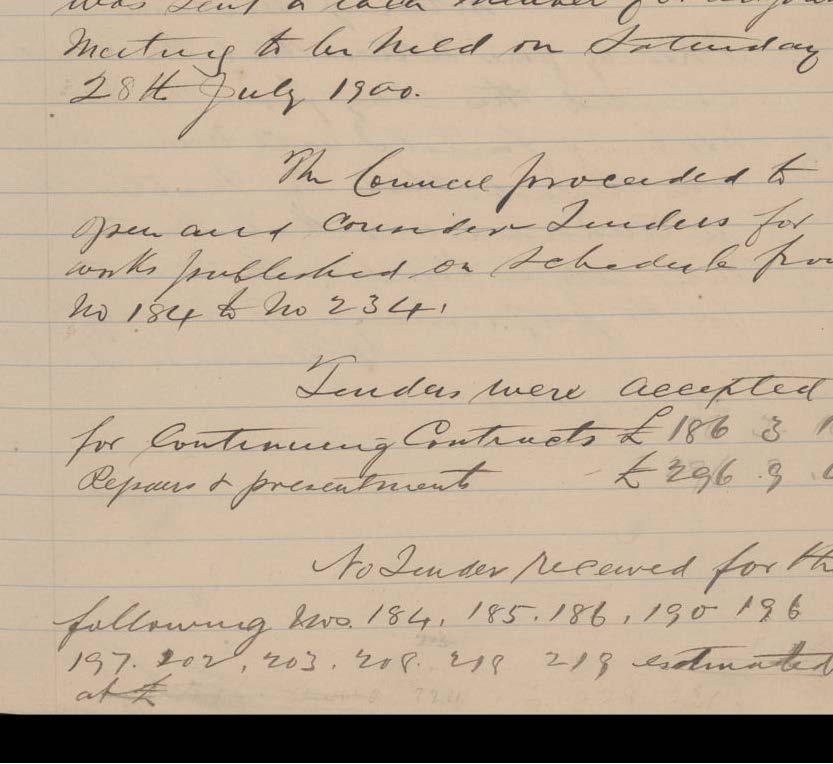 was sent to each member for
Meeting to be held on Saturday
28th July 1900.
The Council proceeded to
open and consider Tenders for
works published on schedule from
No 184 to No 234.
Tenders were accepted
for Continuing Contracts £ 186 3
Repairs & presentments - £ 296 . 9 .
No Tender received for the
following Nos. 184, 185. 186, 190 196
197. 202, 203. 208. 218 219 estimated
at £